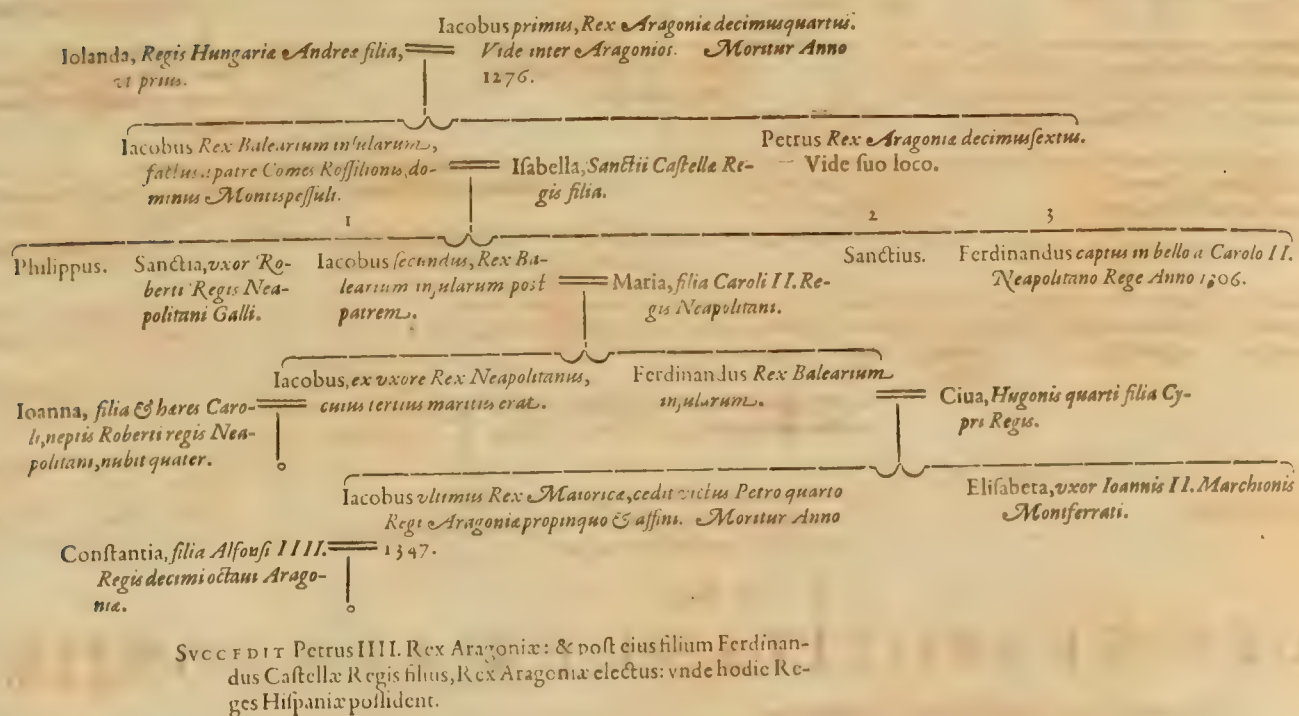 Iacobus primus, Rex Aragoniæ decimusquartus.
Iolanda, Regis Hungariæ Andreæ filia,
vt prius.
Vide inter Aragonios. Moritur Anno
1276.
Iacobus Rex Balearium inſularum,
factus a patre Comes Roſſilionis, do-
minus Montispeſſuli.
Iſabella, Sanctii Caſtellæ Re-
gis filia.
Petrus Rex Aragoniæ decimuſſextus.
Vide ſuo loco.
1
2
3
Philippus.
Sanctia, vxor Ro-
berti Regis Nea-
politani Galli.
Iacobus ſecundus, Rex Ba-
learium inſularum poſt
patrem.
Maria, filia Caroli II. Re-
gis Neapolitani.
Sanctius.
Ferdinandus captus in bello a Carolo II.
Neapolitano Rege Anno 1306.
Iacobus, ex vxore Rex Neapolitanus,
cuius tertius maritus erat.
Ioanna, filia & hæres Caro-
li, neptis Roberti regis Nea-
politani, nubit quater.
Ferdinandus Rex Balearium
inſularum.
Ciua, Hugonis quarti filia Cy-
pri Regis.
Iacobus vltimus Rex Maioricæ, cedit victus Petro quarto
Regi Aragoniæ propinquo & affini. Moritur Anno
1347.
Eliſabeta, vxor Ioannis II. Marchionis
Montferrati.
Conſtantia, filia Alfonſi IIII.
Regis decimi octaui Arago-
niæ.
SVCCEDIT Petrus IIII. Rex Aragoniæ: & poſt eius filium Ferdinan-
dus Caſtellæ Regis filius, Rex Aragoniæ electus: vnde hodie Re-
ges Hiſpaniæ poſſident.